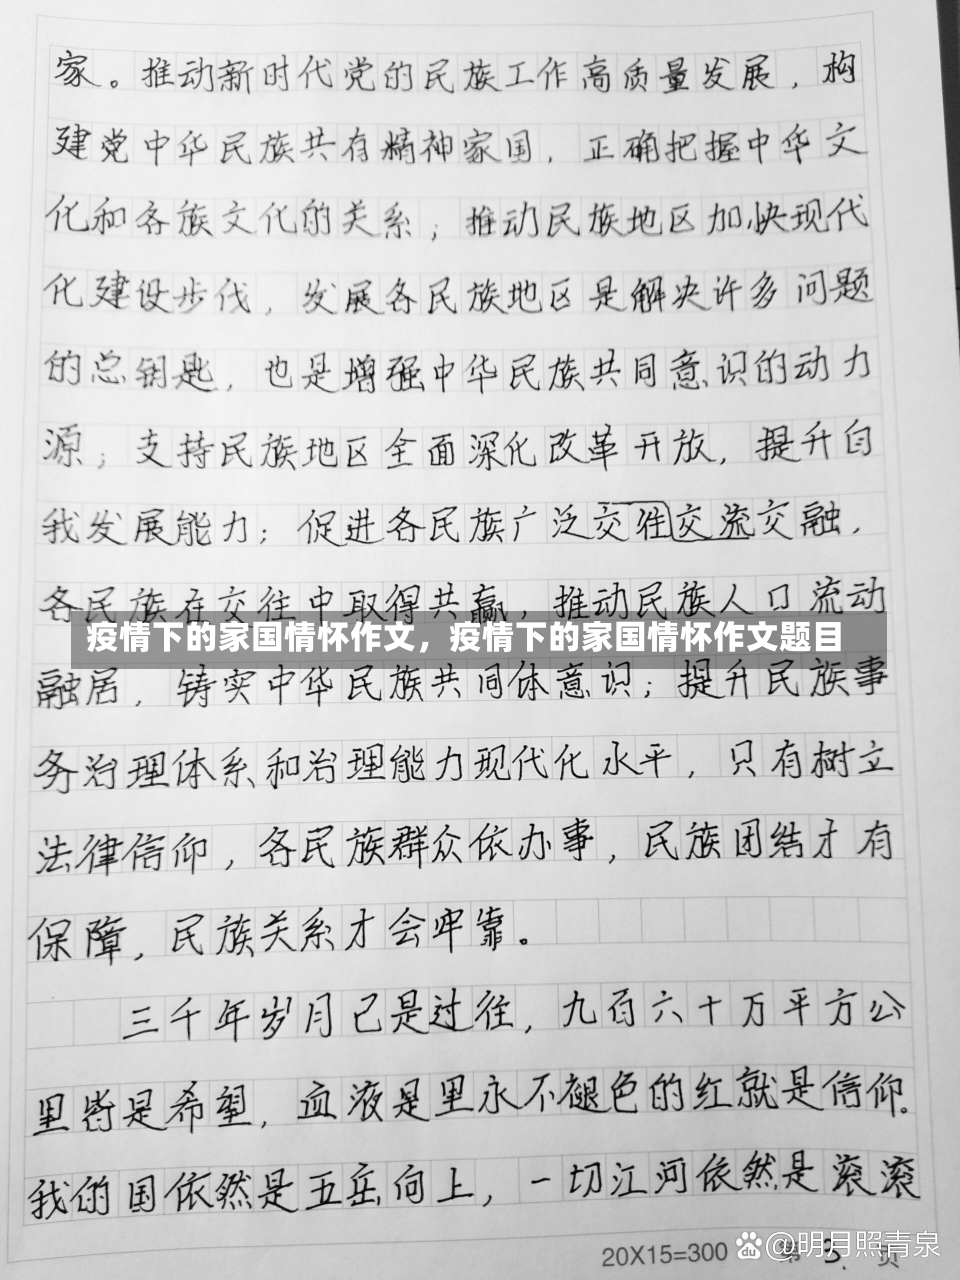 家。推动新时代党的民族工作高质量发展，构
建党中华民族共有精神家国，正确把握中华文
化和各族文化的关系；推动民族地区加快现代
化建设步伐，发展各民族地区是解决许多问题
的总钥匙，也是增强中华民族共同意识的动力
源；支持民族地区全面深化改革开放，提升自
我发展能力；促进各民族广泛交往交流交融，
各民族在交往中取得共赢，推动民族人口流动
疫情下的家国情怀作文，疫情下的家国情怀作文题目
融居，铸实中华民族共同体意识；提升民族事
务治理体系和治理能力现代化水平，只有树立
法律信仰，各民族群众依办事，民族团结才有
保障，民族关系才会牢靠。
三千年岁月已是过往，九百六十万平方公
里皆是希望，血液是里永不褪色的红就是信仰。
我的国依然是五岳向上，一切江河依然是滚滚
20X15=300 第3页
@明月照青泉